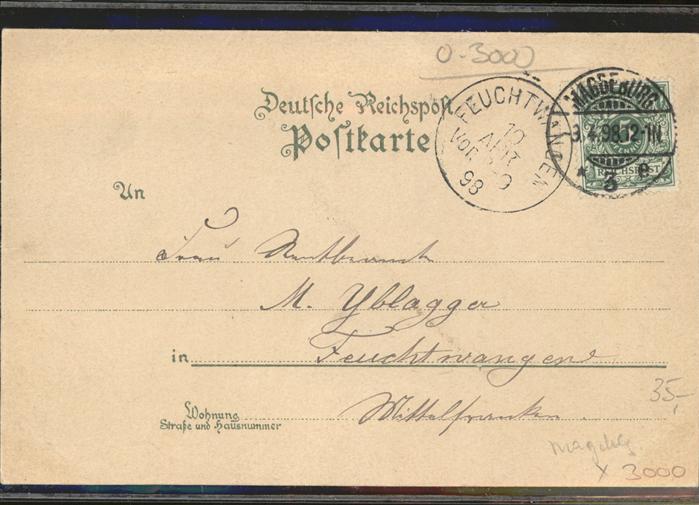 0-3000
Deutsche Reichspost
Postkarte
FEUCHTWANGEN
10
APR
Vor. 8-9
98
MAGDEBURG
9.4.98.12-1N
* 3 e
REICHSPOST
An
Frau Rentbeamte
M. Yblagger
in Feuchtwangen
Wohnung
Straße und Hausnummer
Mittelfranken.
35,-
Magdbg
x 3000